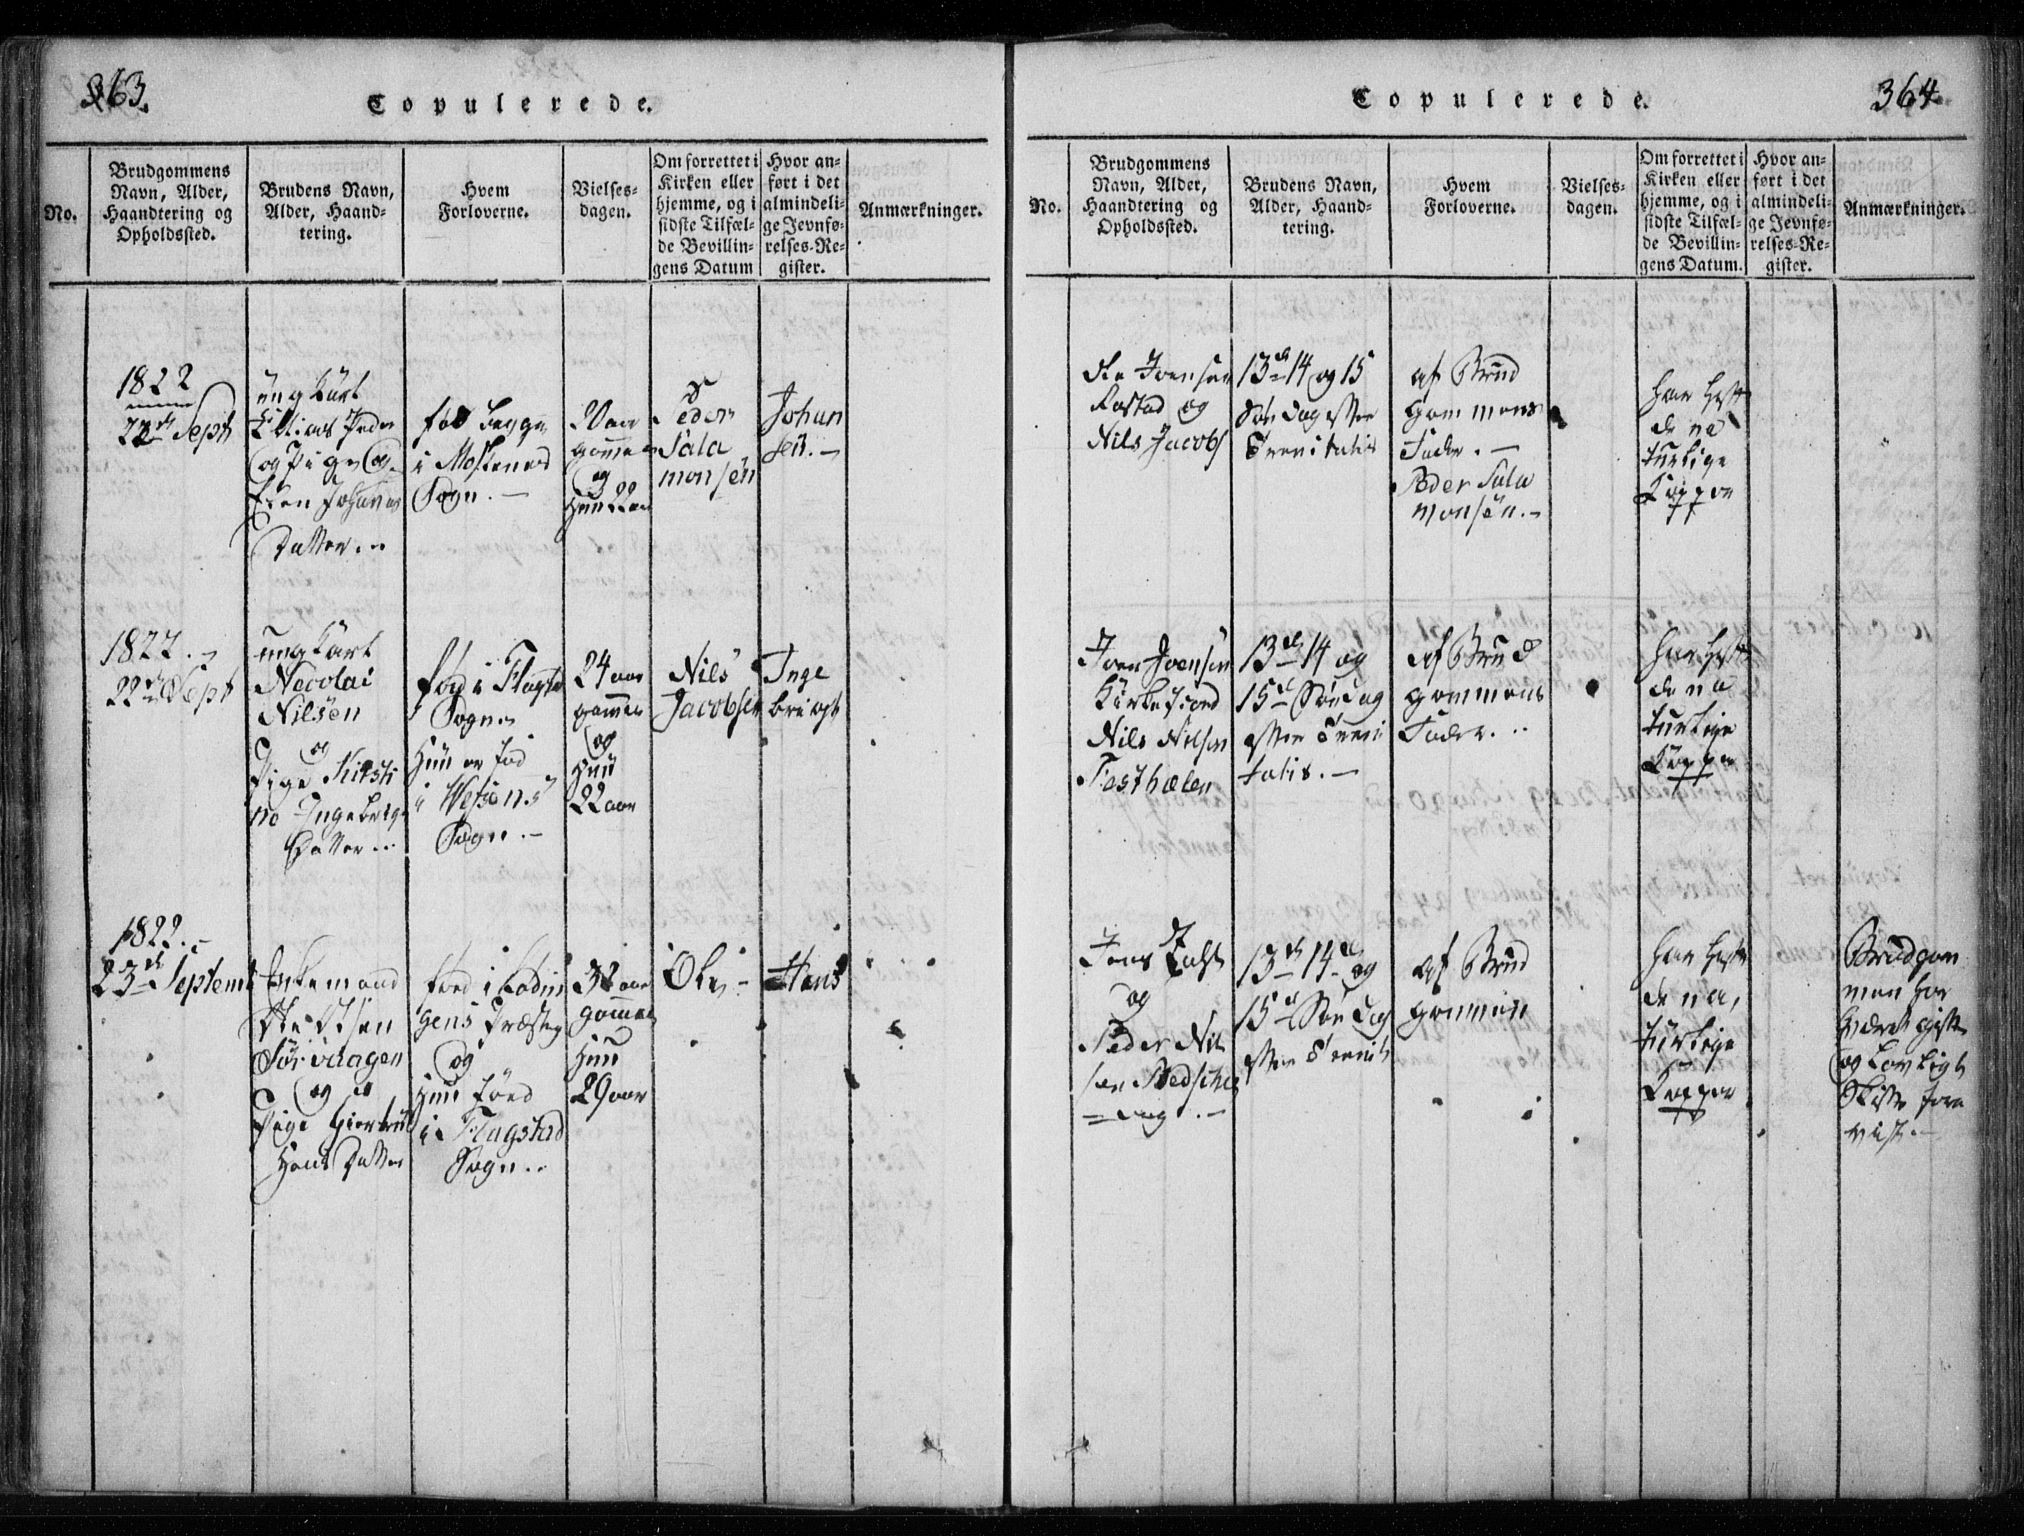 363.
Copulerede.
No.
Brudgommens
Navn, Alder,
Haandtering og
Opholdssted.
Brudens Navn,
Alder, Haand-
tering.
Hvem
Forloverne.
Vielses-
dagen.
Om forrettet i
Kirken eller
hjemme, og i
sidste Tilfæl-
de Bevillin-
gens Datum
Hvor an-
ført i det
almindeli-
ge Jevnfø-
relses-Re-
gister.
Anmærkninger.
1822
22de Sept
ung Karl
Elias Peder
og Pige
Elen Johannes
Datter. -
fød begge
i Moskenes
Sogn. -
gammel
og
Hun 22 aar
Peder
Sala
monsen
Johan
sen. -
1822. -
22de Sept
ungkarl
Nicolai
Nilsen
og
Pige Kirsti
ne Ingebrigt
Datter. -
fød i Flagstad
Sogn
Hun er fød
i Vefsens
Sogn. -
24 aar
gammel
og
Hun
22 aar
Nils
Jacobsen
Inge
brigt
1822. -
23de Septemb
Enkemand
Sørvaagen
og
Pige Giertrud
Hans Datter
fød i Bodøe
gens Præsteg
og
Hun fød
i Flagstad
Sogn. -
gammel
Hun
29 aar
Ole -
Hans
364.
Copulerede.
No.
Brudgommens
Navn, Alder,
Haandtering og
Opholdssted.
Brudens Navn,
Alder, Haand-
tering.
Hvem
Forloverne.
Vielses-
dagen.
Om forrettet i
Kirken eller
hjemme, og i
sidste Tilfæl-
de Bevillin-
gens Datum.
Hvor an-
ført i det
almindeli-
ge Jevnfø-
relses-Re-
gister.
Anmærkninger.
Ole Joensen
Rostad og
Nils Jacobs
13de 14 og 15
Søndag efter
Trenitatis
af Brud
gommens
Fader. -
Peder Sala
monsen. -
har haft
de na
turlige
Kopper
Joen Joensen
Kirkefiord
Nils Nilsen
Festhælen
13de 14 og
15de Søndag
efter Treni
tatis. -
af Brud
gommens
Fader. -
har haft
de na
turlige
Kopper
Jens
og
Peder Nil
sen
13de 14de og
15de Søndag
efter Trenit
af Brud
gommen
har haft
de na,
turlige
Kopper
Brudgom
men har
været gift
og lovligt
Skifte fore
vist. -